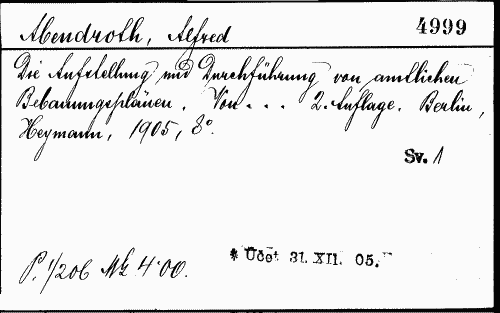 Abendroth, Alfred 4999
Die Aufstellung und Durchführung von amtlichen
Bebauungsplänen. Von . . . 2. Auflage. Berlin,
Heymann, 1905, 8°.
Sv. 1
* Účet 31. XII. 05.
P. 1/206 Mk 4·00.